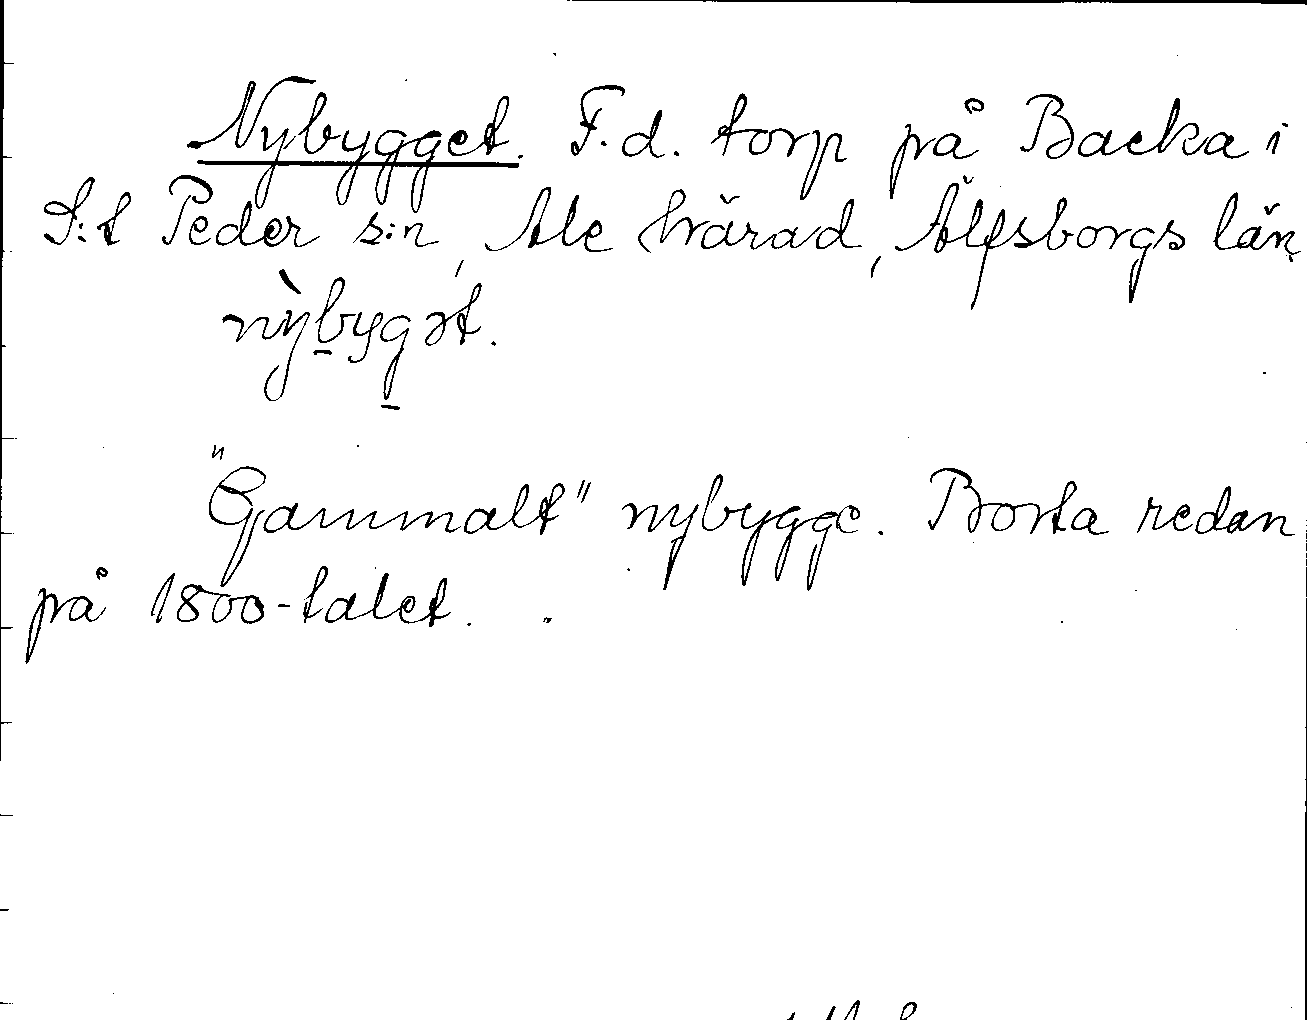 Nybygget. F.d. torp på Backa i
S:t Peder s:n, Ale härad, Älfsborgs län.
nỳbygət.
"Gammalt" nybygge. Borta redan
på 1800-talet.